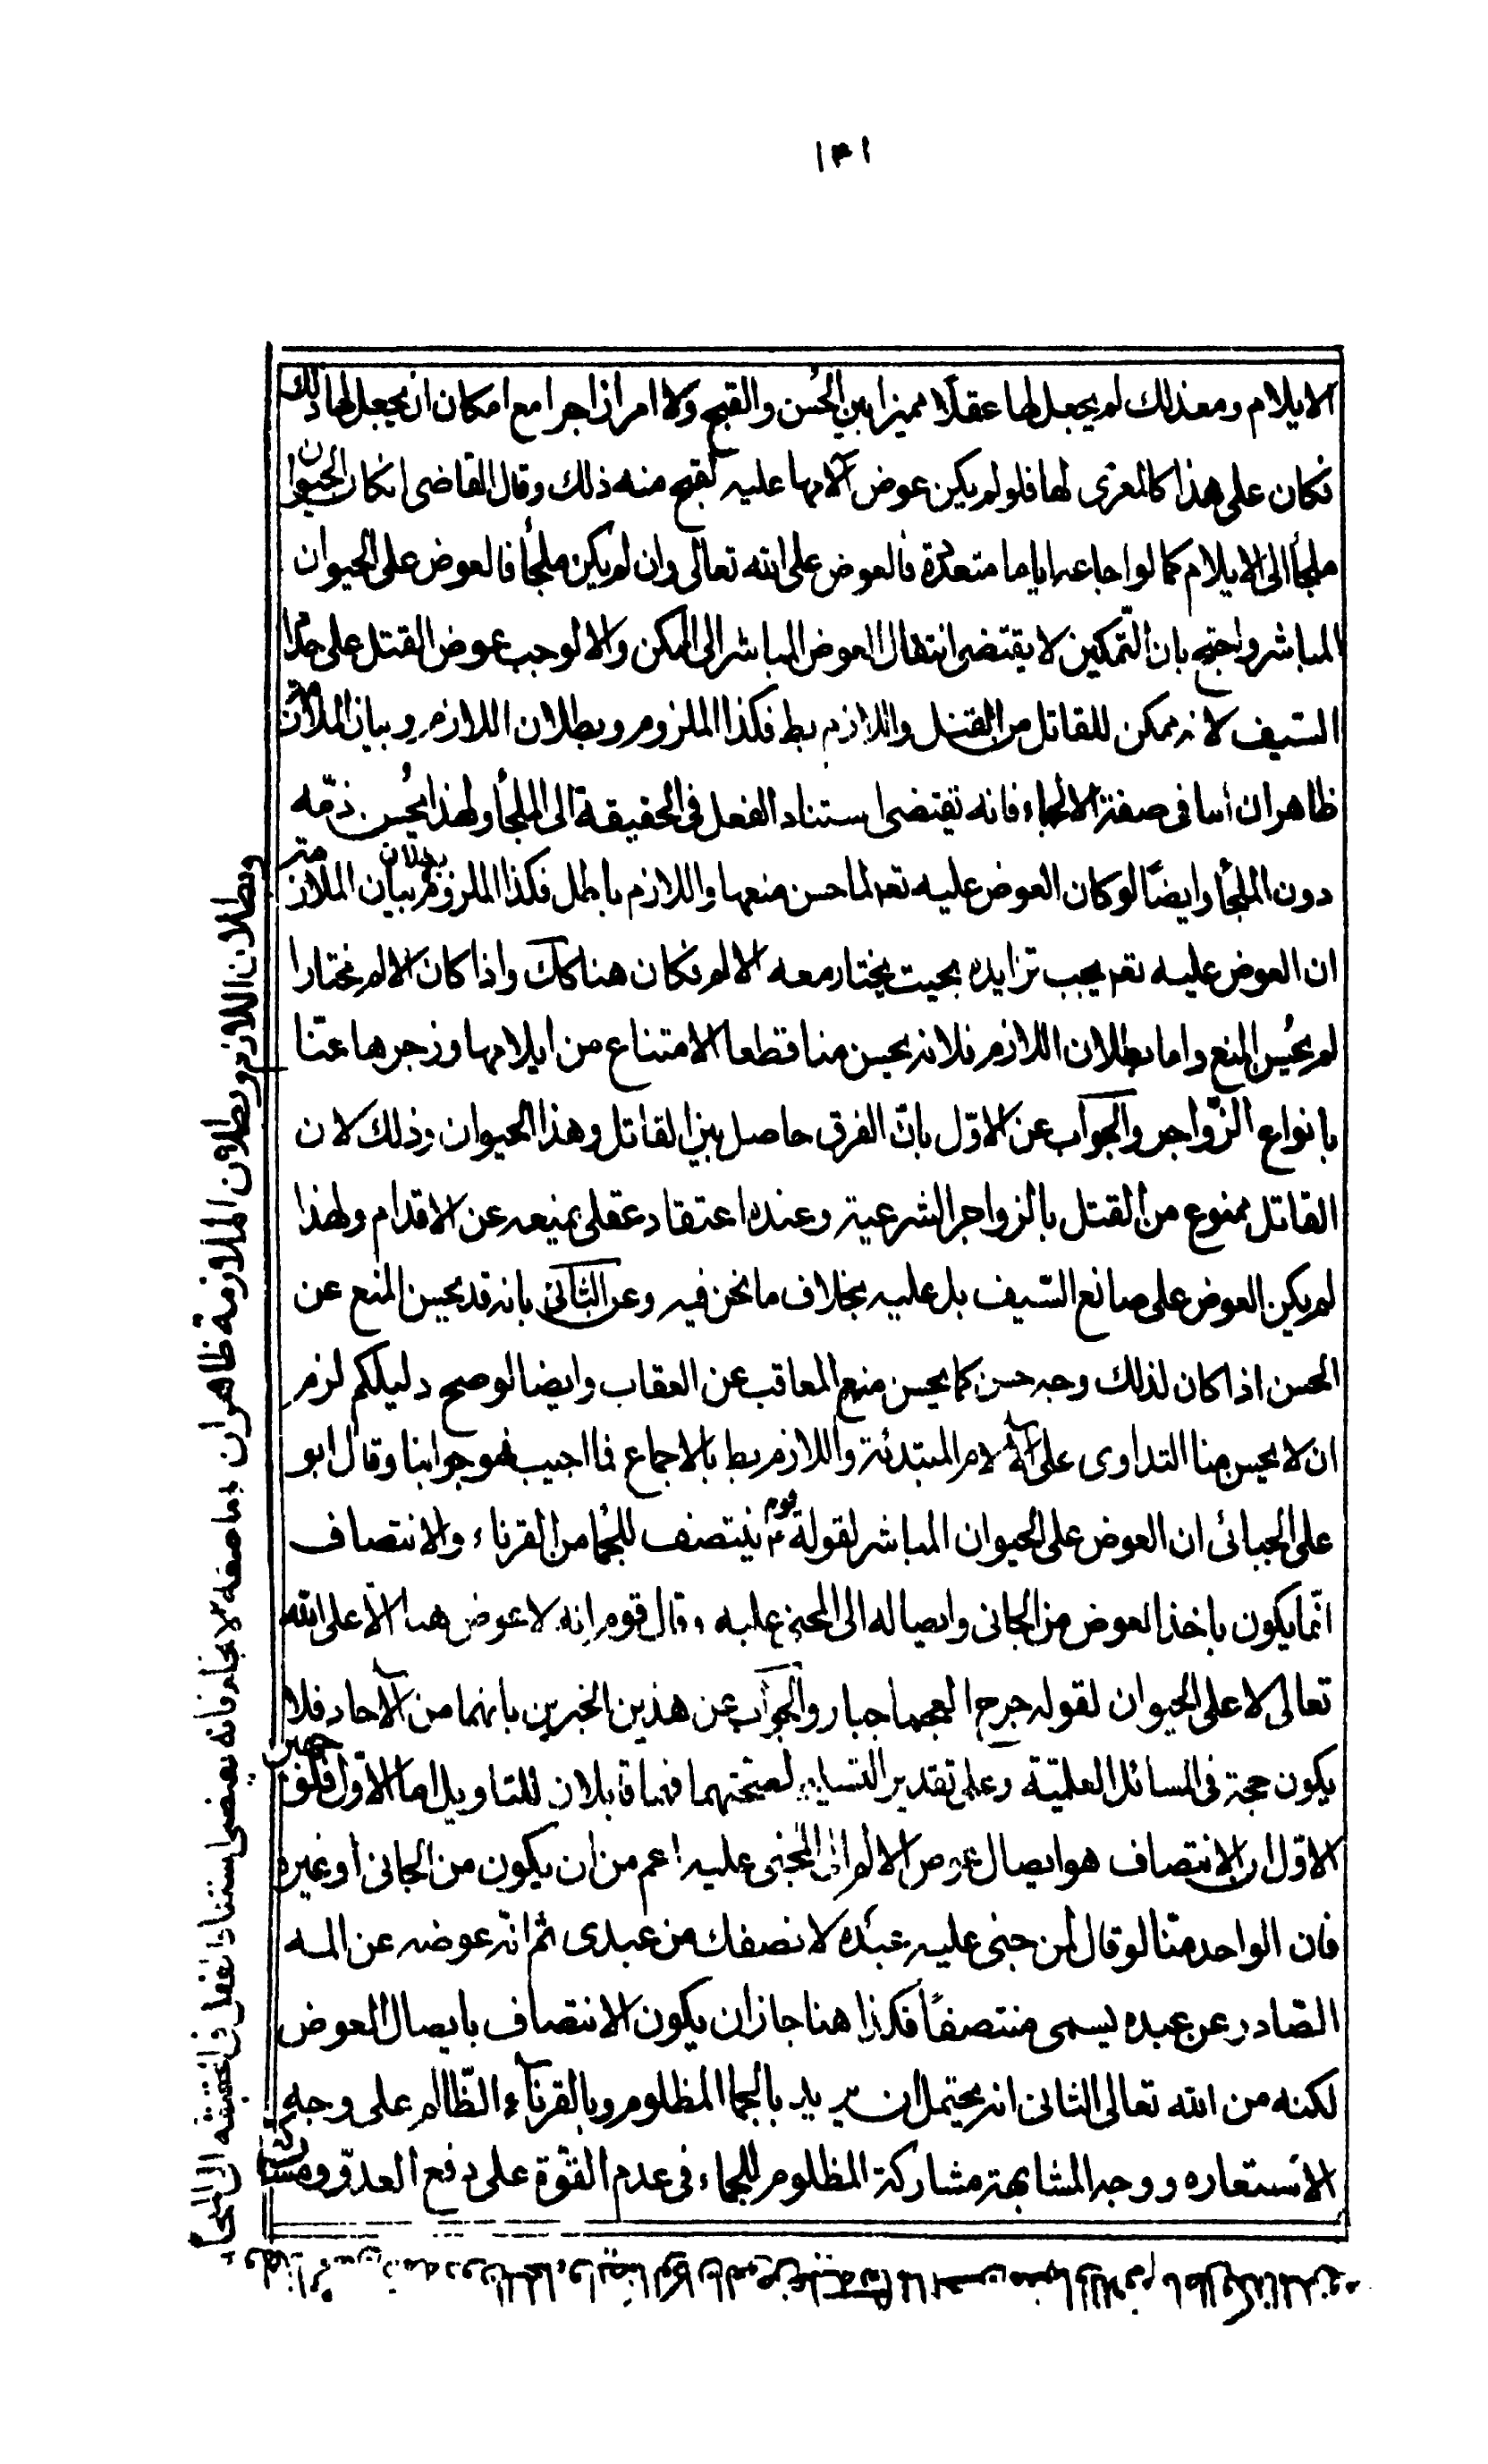 ١٣١
الايلام ومعذلك لم يجعل لها عقلا مميزا بين الحُسن والقبح ولا امرا زاجرا مع امكان ان يجعل لها ذلك
فكان على هذا كالمغرى لها فلو لم يكن عوض آلامها عليه لقبح منه ذلك وقال القاضى انكان الحيوان
ملجأ الى الايلام كما لو اجاعه اياما متعددة فالعوض على الله تعالى وان لم يكن ملجأ فالعوض على الحيوان
المباشر واحتج بان التّمكين لا يقتضى انتقال العوض المباشر الى الممكن والا لوجب عوض القتل على حداد
السّيف لانه ممكن للقاتل من القتل واللازم بط فكذا الملزوم وبطلان اللازم وبيان الملازمة
ظاهران اما فى صفة الالجاء فانه تقتضى استناد الفعل فى الحقيقة الى الملجأ ولهذا يحُسن ذمّه
دون الملجأ وايضًا لو كان العوض عليه تعم لما حسن منعها واللازم باطل فكذا الملزوم بيان الملازمة
ان العوض عليه تعم يجب تزايده بحيث يختار معه الالم فكان هنا كك واذا كان الالم مختارا
لم يحُسن المنع واما بطلان اللازم فلانه يحسن منا قطعا الامتناع من ايلامها وزجرها عنّا
بانواع الزّواجر والجواب عن الاوّل بانّ الفرق حاصل بين القاتل وهذا الحيوان وذلك لان
القاتل ممنوع من القتل بالزواجر الشرعية وعنده اعتقاد عقلى يمنعه عن الاقدام ولهذا
لم يكن العوض على صانع السّيف بل عليه بخلاف ما نحن فيه وعن الثّانى بانه قد يحسن المنع عن
الحسن اذا كان لذلك وجه حسن كما يحسن منع المعاقب عن العقاب وايضا لو صح دليلكم لزم
ان لا يحسن منا التداوى على الآلام المبتدئة واللازم بط بالاجماع فما اجيب فهو جوابنا وقال ابو
على الجبائى ان العوض على الحيوان المباشر لقوله م يوم ينتصف للجما من القرناء والانتصاف
انّما يكون باخذ العوض من الجانى وايصاله الى المجنى عليه وقال قوم انه لا عوض هنا الّا على الله
تعالى لا على الحيوان لقوله جرح العجماء جبار والجواب عن هذين الخبرين بانهما من الآحاد فلا
يكون حجة فى المسائل العلميّة وعلى تقدير التسليم لصحّتهما فهما قابلان للتاويل اما الاوّل فلوجهين
الاوّل ان الانتصاف هو ايصال عوض الالم الى المجنى عليه اعم من ان يكون من الجانى او غيره
فان الواحد منّا لو قال لمن جنى عليه عبَده لانصفك من عبدى ثم انّه عوضه عن المه
الصّادر عن عبده يسمى منتصفًا فكذا هنا جاز ان يكون الانتصاف بايصال العوض
لكنه من الله تعالى الثانى انه يحتمل ان يريد بالجما المظلوم وبالقرناء الظّالم على وجه
الاستعاره ووجه المشابهة مشاركة المظلوم للجماء فى عدم القوّة على دفع العدوّ ومشاركة
وبطلان اللازم وبطلان الملازمة ظاهران اما صفة الالجاء فانه يقتضى استناد الفعل فى الحقيقة الى الملجأ